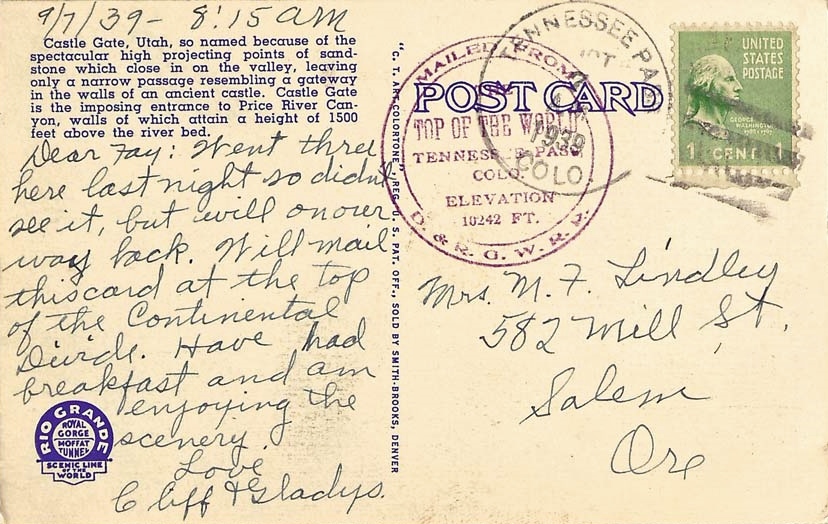 9/7/39 - 8:15 am
Castle Gate, Utah, so named because of the
spectacular high projecting points of sand-
stone which close in on the valley, leaving
only a narrow passage resembling a gateway
in the walls of an ancient castle. Castle Gate
is the imposing entrance to Price River Can-
yon, walls of which attain a height of 1500
feet above the river bed.
Dear Fay: Went thru
here last night so didn't
see it, but will on our
way back. Will mail
this card at the top
of the Continental
Divide. Have had
breakfast and am
enjoying the
scenery.
Love
Cliff & Gladys.
RIO GRANDE
ROYAL
GORGE
MOFFAT
TUNNEL
SCENIC LINE
OF THE
WORLD
"C. T. ART-COLORTONE", REG. U. S. PAT. OFF., SOLD BY SMITH-BROOKS, DENVER
POST CARD
MAILED FROM
TOP OF THE WORLD
TENNESSEE PASS,
COLO.
ELEVATION
10242 FT.
D. & R. G. W. R. R.
TENNESSEE PA
1939
COLO.
UNITED
STATES
POSTAGE
GEORGE
WASHINGTON
1 CENT 1
Mrs. M. F. Lindley
582 Mill St.
Salem
Ore